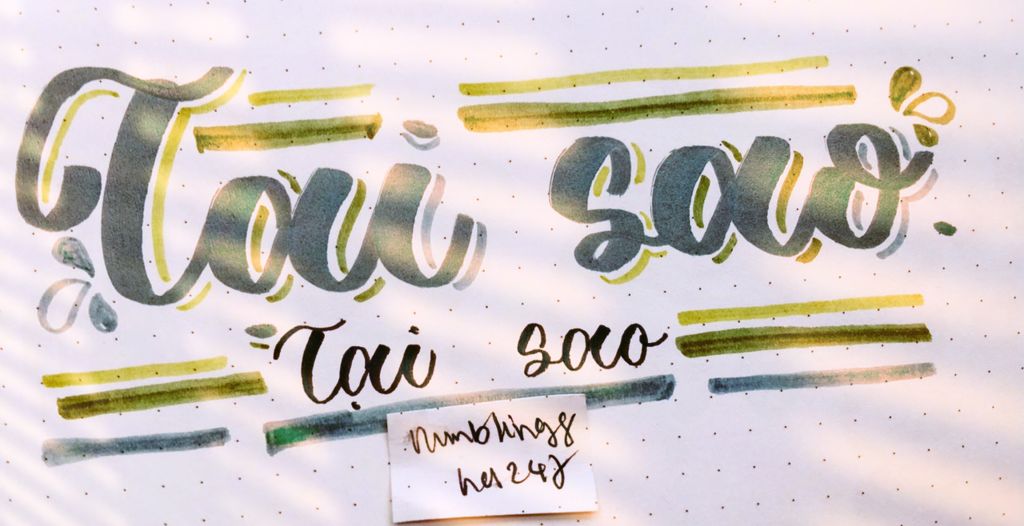 Tại sao
Tại sao
numblings
her247